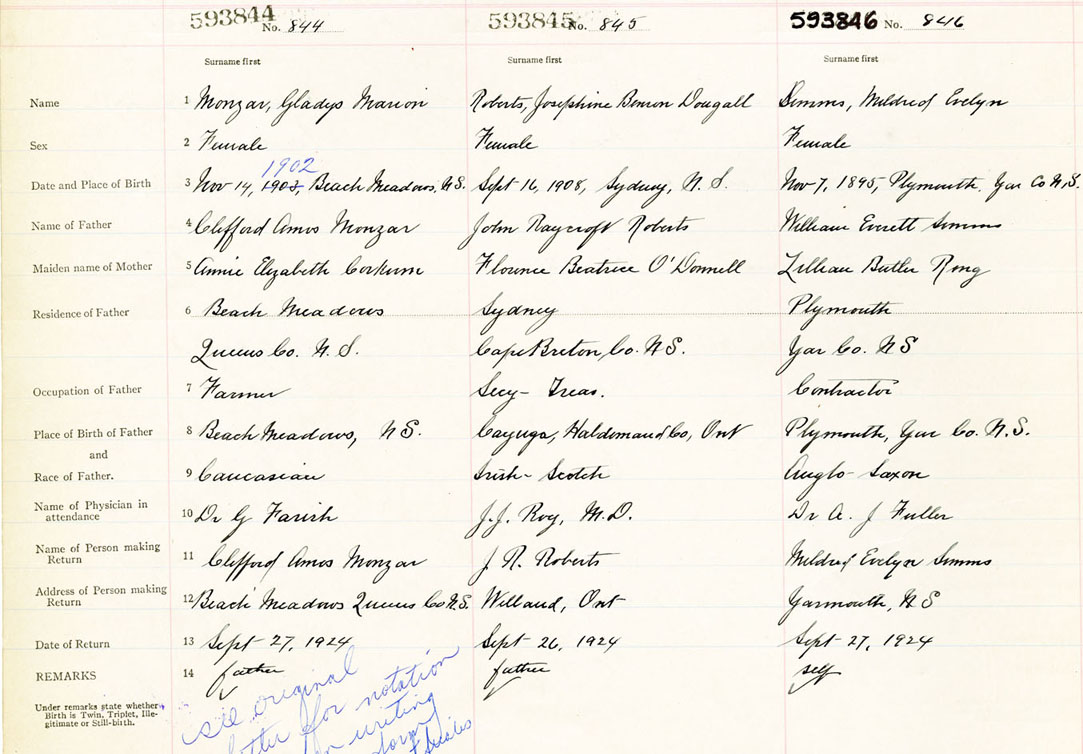 593844 No. 844 593845 No. 845 593846 No. 846
Surname first Surname first Surname first
Name 1 Monzar, Gladys Marion Roberts, Josephine Benson Dougall Simms, Mildred Evelyn
Sex 2 Female Female Female
1902
Date and Place of Birth 3 Nov 14, 1903, Beach Meadows, N.S. Sept 16, 1908, Sydney, N.S. Nov 7, 1895, Plymouth, Yar Co N.S.
Name of Father 4 Clifford Amos Monzar John Raycroft Roberts William Everett Simms
Maiden name of Mother 5 Annie Elizabeth Corkum Florence Beatrice O'Donnell Lillian Butler Ring
Residence of Father 6 Beach Meadows Sydney Plymouth
Queens Co. N.S. Cape Breton, Co. N.S. Yar Co. N S
Occupation of Father 7 Farmer Secy- Treas. Contractor
Place of Birth of Father 8 Beach Meadows, N S. Cayuga, Haldemand Co, Ont Plymouth, Yar Co. N.S.
and
Race of Father. 9 Caucasian Irish- Scotch Anglo- Saxon
Name of Physician in
attendance 10 Dr G Farish J.J. Roy, M.D. Dr A. J Fuller
Name of Person making
Return 11 Clifford Amos Monzar J. R. Roberts Mildred Evelyn Simms
Address of Person making
Return 12 Beach Meadows Queens Co N.S. Welland, Ont Yarmouth, N S
Date of Return 13 Sept 27, 1924 Sept 26, 1924 Sept 27, 1924
REMARKS 14 father father self
Under remarks state whether
Birth is Twin, Triplet, Ille-
gitimate or Still-birth.
see original
for notation
writing